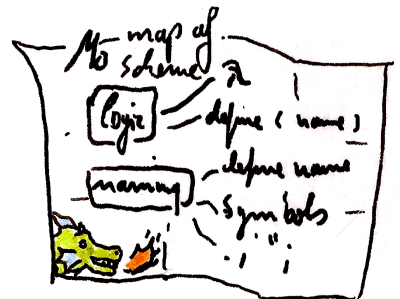 My map of
scheme
logic
λ
define ( name )
naming
define name
Symbols